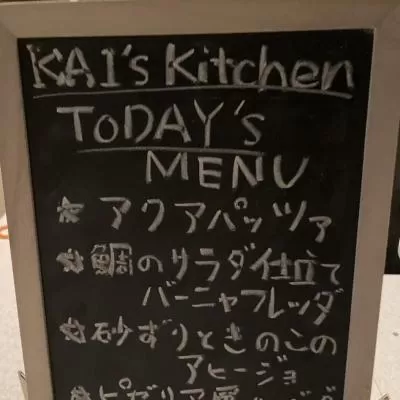 KAI's Kitchen
TODAY's
MENU
* アクアパッツァ
* 鯛のサラダ仕立て
バーニャフレッダ
* 砂ずりときのこの
アヒージョ
* ピゼリア風